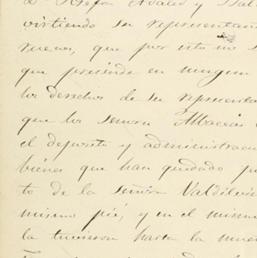 D. Josefa Avalos y Bal
virtiendo su representan
ruenos, que por esto no s
que prescinde en ningun
los derechos de su represent
que los señores Albaceas
el deposito y administrac
bienes que han quedado p
to de la señora Valdivie
mismo pié, y en el mism
la tuvieron hasta la mue